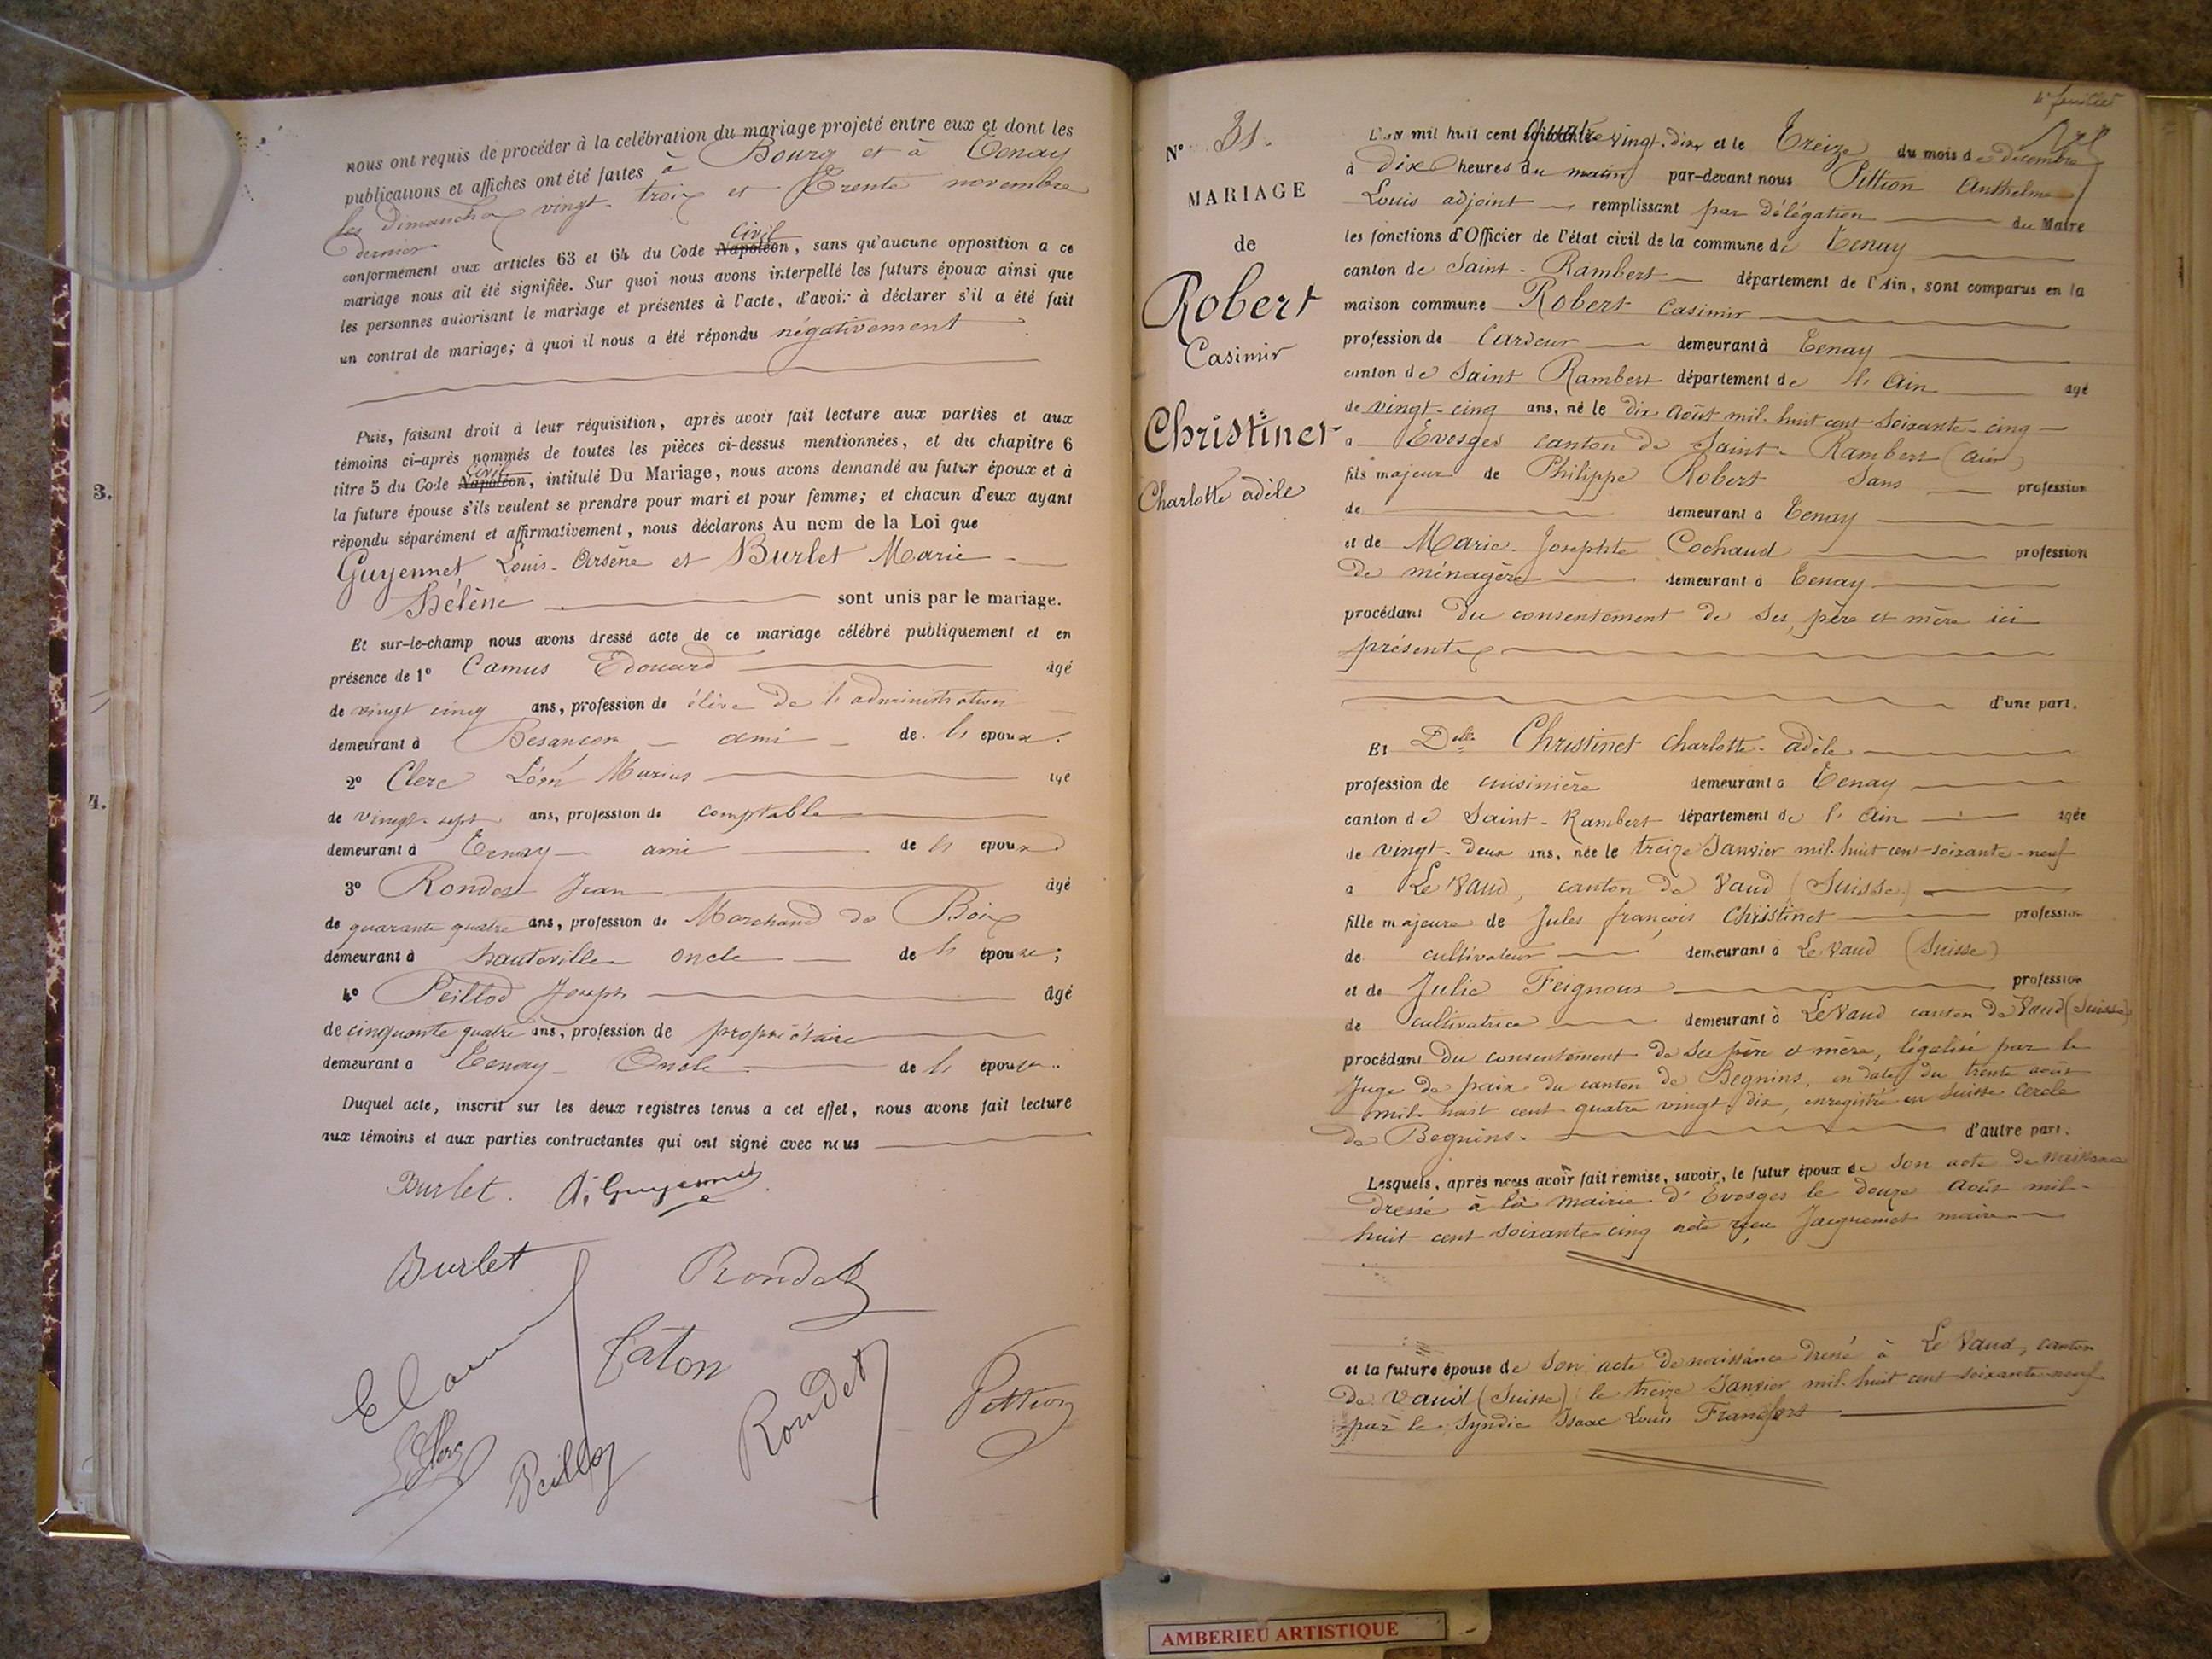 nous ont requis de procéder à la celébration du mariage projeté entre eux et dont les
publications et affiches ont été faites à Bourg et à Tenay
les Dimanche vingt-trois et Trente novembre
dernier
Civil
conformement aux articles 63 et 64 du Code Napoléon, sans qu'aucune opposition a ce
mariage nous ait été signifiée. Sur quoi nous avons interpellé les futurs époux ainsi que
les personnes autorisant le mariage et présentes à l'acte, d'avoir à déclarer s'il a été fait
un contrat de mariage; à quoi il nous a été répondu négativement
Puis, faisant droit à leur réquisition, après avoir fait lecture aux parties et aux
témoins ci-après nommés de toutes les pièces ci-dessus mentionnées, et du chapitre 6
Civil
titre 5 du Code Napoléon, intitulé Du Mariage, nous avons demandé au futur époux et à
la future épouse s'ils veulent se prendre pour mari et pour femme; et chacun d'eux ayant
répondu séparément et affirmativement, nous déclarons Au nom de la Loi que
Guyennet Louis-Arsène et Burlet Marie
Hélène sont unis par le mariage.
Et sur-le-champ nous avons dressé acte de ce mariage célébré publiquement et en
présence de 1° Camus Edouard âgé
de vingt cinq ans, profession de élève de l'administration
demeurant à Besançon ami de l'époux.
2° Clerc Léon Marius âgé
de vingt-sept ans, profession de comptable
demeurant à Tenay ami de l'époux
3° Rondet Jean âgé
de quarante quatre ans, profession de Marchand de Bois
demeurant à hauteville oncle de l'épouse;
4° Peillod Joseph âgé
de cinquante quatre ans, profession de propriétaire
demeurant a Tenay Oncle de l'épouse.
Duquel acte, inscrit sur les deux registres tenus a cet effet, nous avons fait lecture
aux témoins et aux parties contractantes qui ont signé avec nous
Burlet. A. Guyennet
Burlet Rondet
E Camus Caton
L Clerc Peillod Rondet Pittion
3.
4.
4e feuillet
N° 31.
MARIAGE
de
Robert
Casimir
&
Christinet
Charlotte adèle
L'an mil huit cent quatre vingt-dix et le Treize du mois de décembre
à dix heures du matin par-devant nous Pittion Anthelme
Louis adjoint remplissant par délégation du Maire
les fonctions d'Officier de l'état civil de la commune de Tenay
canton de Saint-Rambert département de l'Ain, sont comparus en la
maison commune Robert Casimir
profession de Cardeur demeurant à Tenay
canton de Saint Rambert département de l'Ain agé
de vingt-cinq ans, né le dix Août mil-huit cent-soixante-cinq
a Evosges canton de Saint-Rambert (Ain)
fils majeur de Philippe Robert Sans profession
de demeurant a Tenay
et de Marie-Josephte Cochaud profession
de ménagère demeurant à Tenay
procédant du consentement de ses père et mère ici
présents
d'une part.
Et Delle Christinet Charlotte-adèle
profession de cuisinière demeurant a Tenay
canton de Saint-Rambert département de l'Ain agée
de vingt-deux ans, née le treize Janvier mil-huit cent-soixante-neuf
a Le Vaud, canton de Vaud (Suisse)
fille majeure de Jules françois Christinet profession
de cultivateur demeurant à Le Vaud (Suisse)
et de Julie Feignoux profession
de cultivatrice demeurant à Le Vaud canton de Vaud (Suisse)
procédant du consentement de ses père et mère, légalisé par le
Juge de paix du canton de Begnins, en date du trente août
mil-huit cent quatre vingt-dix, enregistré en Suisse cercle
de Begnins. d'autre part.
Lesquels, après nous avoir fait remise, savoir, le futur époux de son acte de naissance
dressé à la mairie d'Evosges le douze Août mil-
huit cent-soixante-cinq acte reçu Jacquemet maire
et la future épouse de son acte de naissance dressé à Le Vaud, canton
de Vaud (Suisse) le treize Janvier mil-huit cent-soixante-neuf
par le Syndic Isaac Louis
AMBERIEU ARTISTIQUE